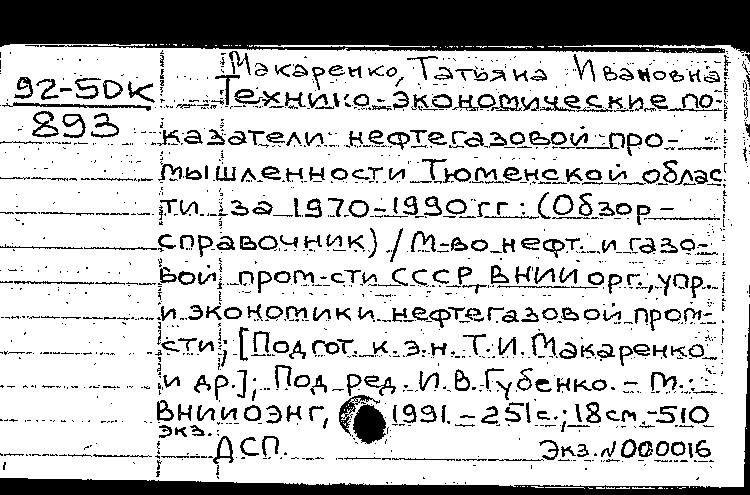 Макаренко, Татьяна Ивановна
92-5DK
893
Технико-экономические по-
казатели нефтегазовой про-
мышленности Тюменской облас
ти за 1970-1990 гг: (Обзор-
справочник) / М-во нефт. и газо-
вой пром-сти СССР, ВНИИ орг., упр.
и экономики нефтегазовой пром-
сти; [Подгот. к.э.н. Т.И. Макаренко
и др.]; Под ред. И.В. Губенко. - М.:
ВНИИОЭНГ, 1991. - 251с.; 18 см. - 510
экз.
ДСП. Экз. N 000016